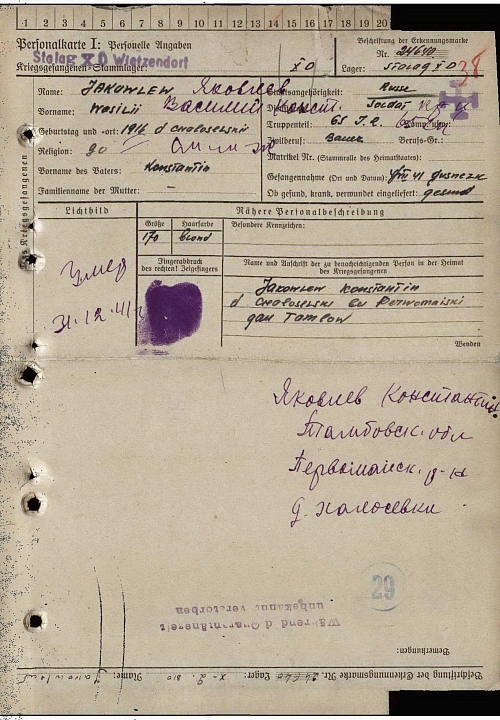 1 2 3 4 5 6 7 8 9 10 11 12 13 14 15 16 17 18 19 20
Personalkarte I: Personelle Angaben
Beschriftung der Erkennungsmarke
Stalag X D Wietzendorf
Nr. 24640
Kriegsgefangenen-Stammlager: X D
Lager: Stalag X D
Name: JAKOWLEW Яковлев
Staatsangehörigkeit: Russe
Vorname: Wasilii Василий Конст.
Soldat
Geburtstag und -ort: 1916 d
Truppenteil: 65 I.R.
Religion: go
Zivilberuf: Bauer Berufs-Gr.:
Matrikel Nr. (Stammrolle des Heimatstaates):
Vorname des Vaters: Konstantin
Gefangennahme (Ort und Datum):
Familienname der Mutter: –
Ob gesund, krank, verwundet eingeliefert: gesund
des Kriegsgefangenen
Lichtbild
Nähere Personalbeschreibung
Größe
Haarfarbe
Besondere Kennzeichen:
170
blond
Fingerabdruck
des rechten! Zeigefingers
Name und Anschrift der zu benachrichtigenden Person in der Heimat
des Kriegsgefangenen
умер
31.12.41 г
Jakowlew Konstantin
gau Tambow
Wenden
Яковлев Константин
Тамбовск. обл
Первомайск. р-н
д. Халосевки
29
Während d Quarantänezeit
unbekannt verstorben
Bemerkungen:
Beschriftung der Erkennungsmarke Nr. 24640 Lager: X-D. 310 Name: Jakowlew